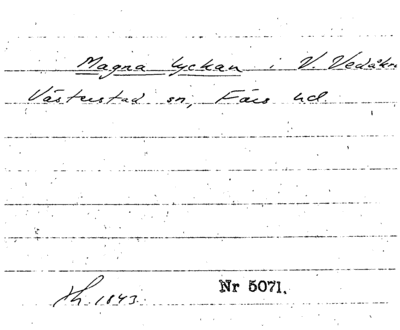 Magna lyckan i V. Vedåkr
Västerstad sn, Färs hd.
Hh. 1843.
Nr 5071.